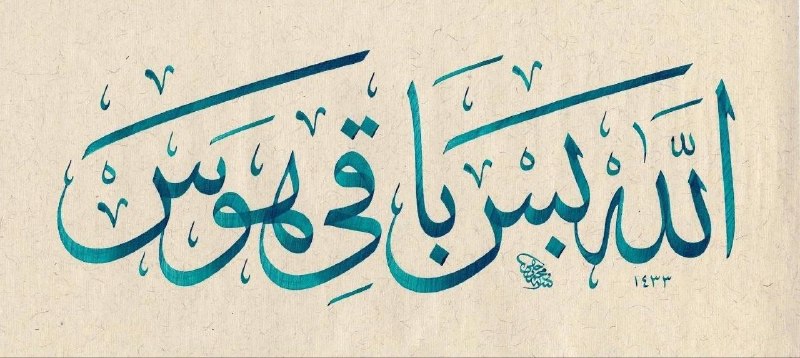 اللّٰه بَسْ بَاقِي هَوَسْ
١٤٣٣